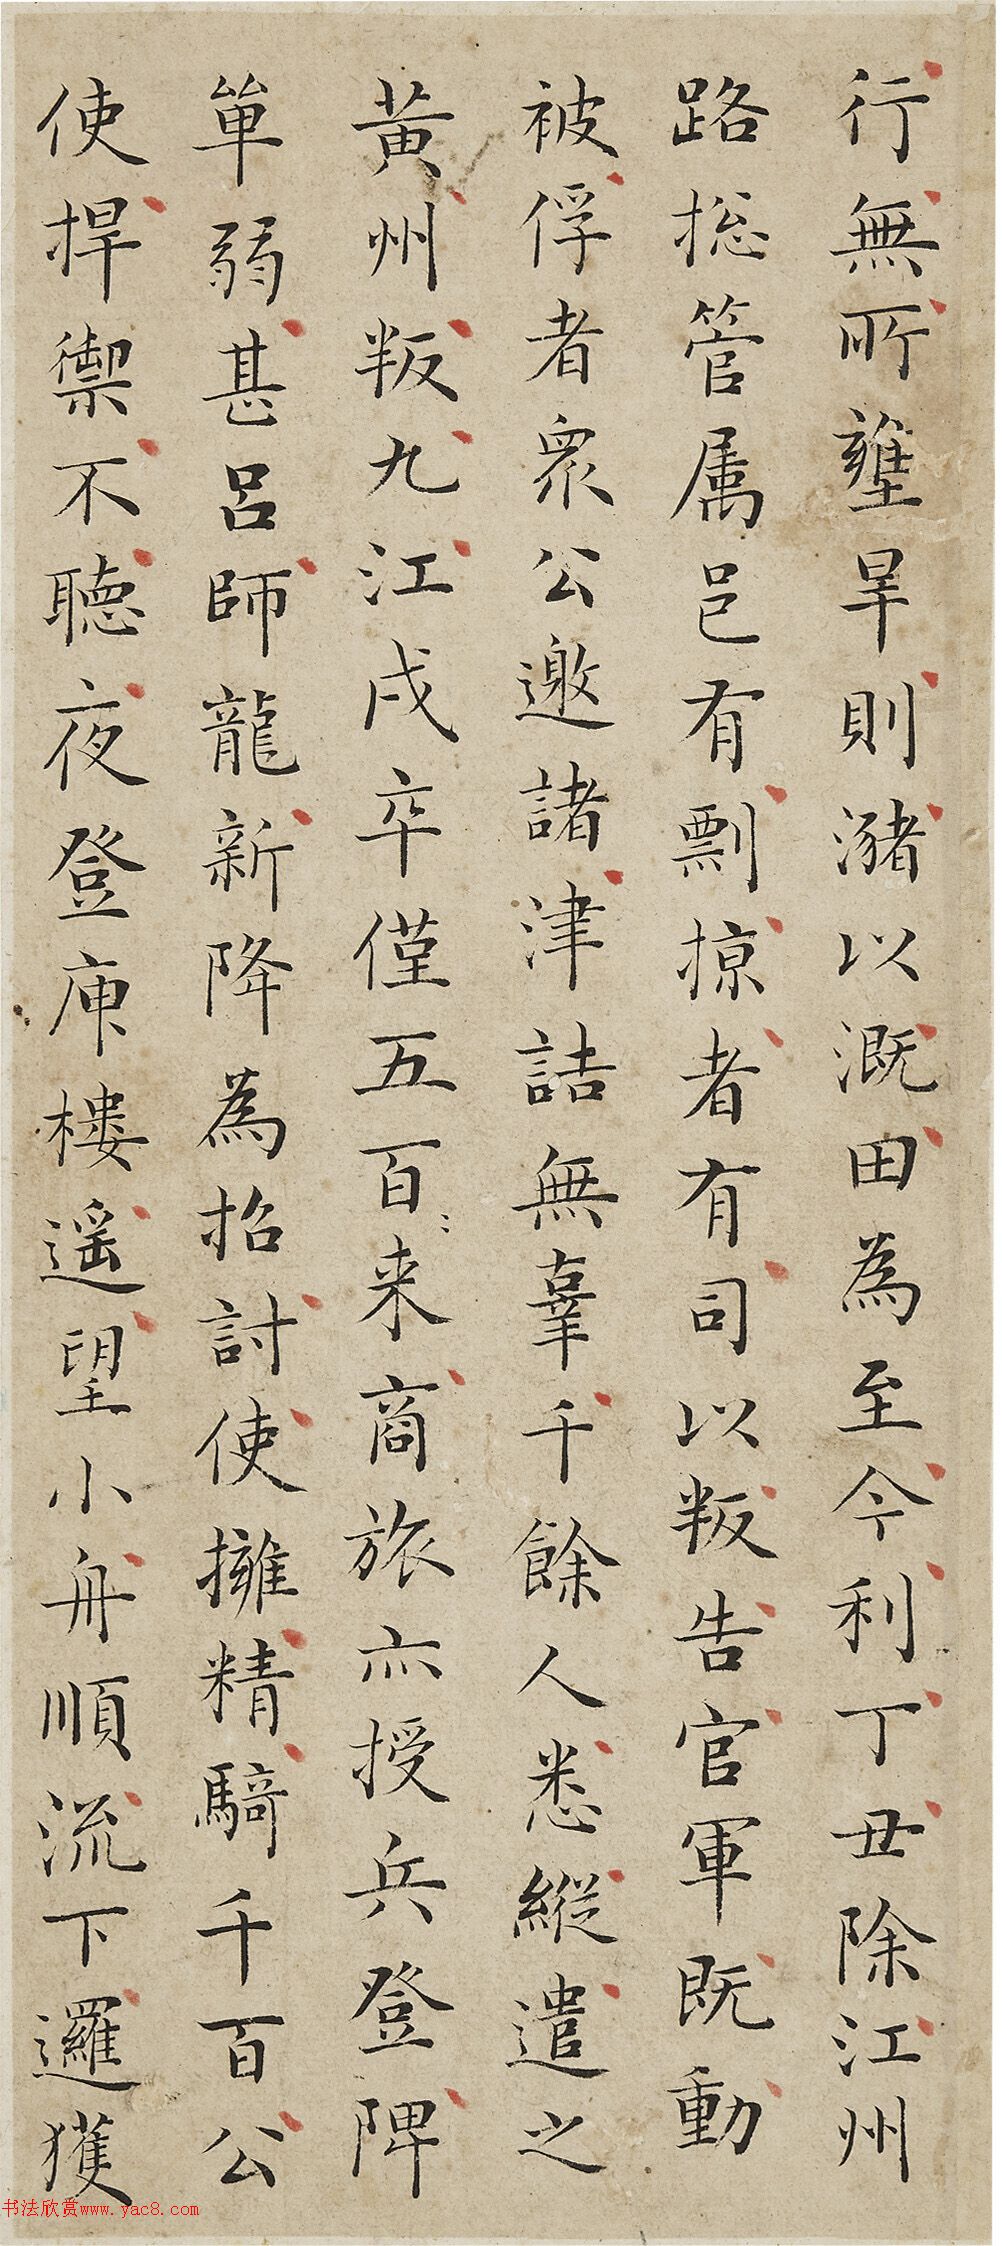 行無所壅旱則瀦以溉田為至今利丁丑除江州
路捴管属邑有剽掠者有司以叛告官軍既動
被俘者衆公邀諸津詰無辜千餘人悉縱遣之
黄州叛九江戍卒僅五百来商旅亦授兵登陴
単弱甚呂師龍新降為招討使擁精騎千百公
使捍禦不聴夜登庾樓遥望小舟順流下邏獲
书法欣赏www.yac8.com